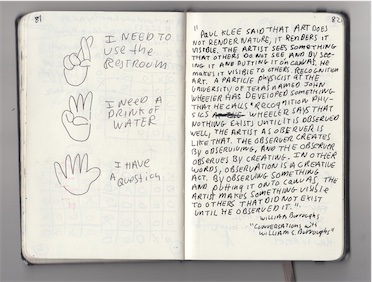 81
I NEED TO
USE THE
RESTROOM
I NEED A
DRINK OF
WATER
I HAVE
A QUESTION
82
"PAUL KLEE SAID THAT ART DOES
NOT RENDER NATURE, IT RENDERS IT
VISIBLE. THE ARTIST SEES SOMETHING
THAT OTHERS DO NOT SEE AND BY SEE-
ING IT AND PUTTING IT ON CANVAS, HE
MAKES IT VISIBLE TO OTHERS. RECOGNITION
ART. A PARTICLE PHYSICIST AT THE
UNIVERSITY OF TEXAS NAMED JOHN
WHEELER HAS DEVELOPED SOMETHING
THAT HE CALLS "RECOGNITION PHY-
SICS WHEELER SAYS THAT
NOTHING EXISTS UNTIL IT IS OBSERVED
WELL, THE ARTIST AS OBSERVER IS
LIKE THAT. THE OBSERVER CREATES
BY OBSERVING, AND THE OBSERVER
OBSERVES BY CREATING. IN OTHER
WORDS, OBSERVATION IS A CREATIVE
ACT. BY OBSERVING SOMETHING
AND PUTTING IT ONTO CANVAS, THE
ARTIST MAKES SOMETHING VISIBLE
TO OTHERS THAT DID NOT EXIST
UNTIL HE OBSERVED IT."
WILLIAM BURROUGHS
"CONVERSATIONS WITH
WILLIAM S. BURROUGHS"